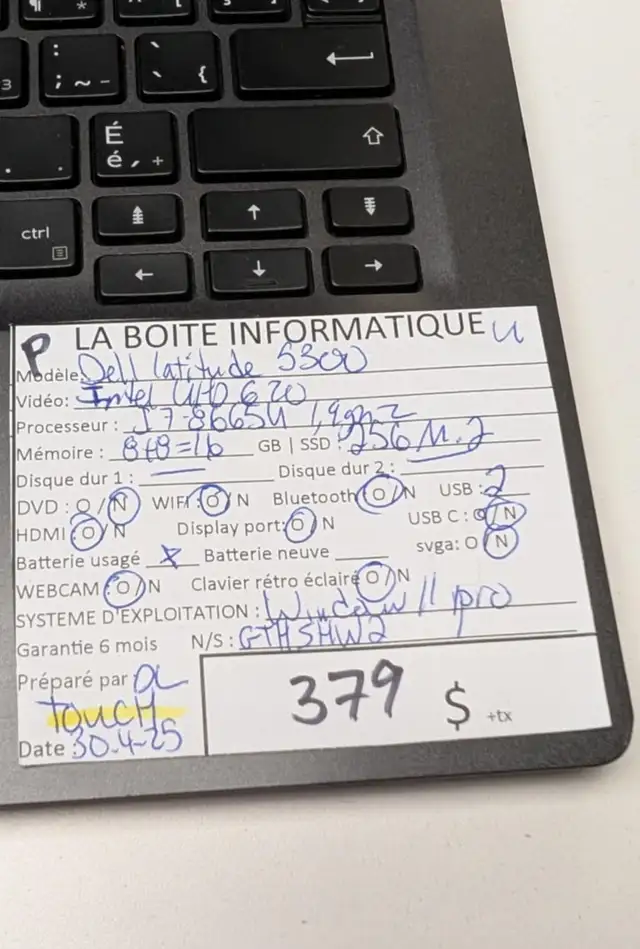 ¶ *
3
: ; ~ -
` ` {
. .
É é , +
ctrl
P LA BOITE INFORMATIQUE u
Modèle: Dell Latitude 5300
Vidéo: Intel UHD 620
Processeur : I7-8665U 1,9ghz
Mémoire : 8+8=16 GB | SSD : 256 M.2
Disque dur 1 : Disque dur 2 :
DVD : O / N WIFI : O / N Bluetooth O / N USB : 2
HDMI O / N Display port: O / N USB C : O / N
Batterie usagé x Batterie neuve svga: O / N
WEBCAM : O / N Clavier rétro éclairé O / N
SYSTEME D'EXPLOITATION : Window 11 pro
Garantie 6 mois N/S : GTHSHW2
Préparé par
TOUCH
Date 30-4-25
379 $ +tx